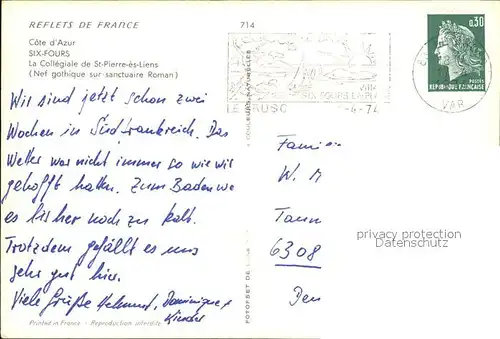 REFLETS DE FRANCE
714
Côte d'Azur
SIX-FOURS
La Collégiale de St-Pierre-ès-Liens
(Nef gothique sur sanctuaire Roman)
Wir sind jetzt schon zwei
Wochen in Südfrankreich. Das
Wetter war nicht immer so wie wir
gehofft hatten. Zum Baden war
es bisher noch zu kalt.
Trotzdem gefällt es uns
sehr gut hier.
Viele Grüße Helmut, Dominique +
Kinder
Printed in France - Reproduction interdite
COULEURS NATURELLES
LE BRUSC
SIX FOURS LA PLAGE
-4-74
VAR
0,30
POSTES
REPUBLIQUE FRANÇAISE
Famili
W. M
Tann
6308
Den
privacy protection
Datenschutz